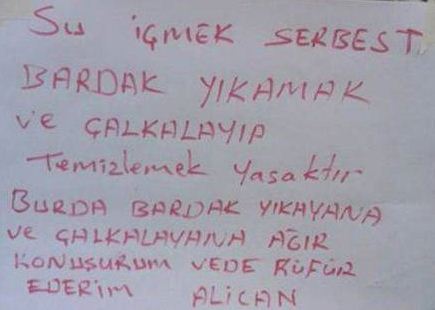 Su içmek SERBEST
BARDAK YIKAMAK
ve ÇALKALAYIP
Temizlemek yasaktır
BURDA BARDAK YIKAYANA
ve ÇALKALAYANA AĞIR
KONUŞURUM VEDE KÜFÜR
EDERİM ALİCAN